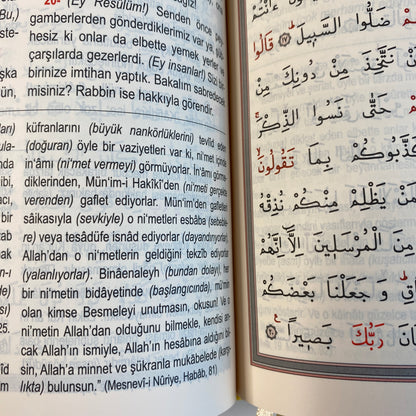 20- (Ey Resûlüm!) Senden önce
gamberlerden gönderdiklerimiz var ya,
hesiz ki onlar da elbette yemek yerler
çarşılarda gezerlerdi. (Ey insanlar!) Sizi
birinize imtihan yaptık. Bakalım sabredecek
misiniz? Rabbin ise hakkıyla görendir.
küfranlarını (büyük nankörlüklerini) tevlîd eden
(doğuran) öyle bir vaziyetleri var ki, ni'met içinde
in'âmı (ni'met vermeyi) görmüyorlar. İn'âmı
diklerinden, Mün'im-i Hakîkî'den (ni'meti gerçekte
verenden) gaflet ediyorlar. Mün'im'den gafletleri
sâikasıyla (sevkiyle) o ni'metleri esbâba (sebeblere)
veya tesâdüfe isnâd ediyorlar (dayandırıyorlar)
Allah'dan o ni'metlerin geldiğini tekzîb ediyorlar
(yalanlıyorlar). Binâenaleyh (bundan dolayı), her
ni'metin bidâyetinde (başlangıcında), mü'min
olan kimse Besmeleyi unutmasın, okusun! Ve o
ni'metin Allah'dan olduğunu bilmekle, kendisi ancak
cak Allah'ın ismiyle, Allah'ın hesâbına aldığını bilerek
Allah'a minnet ve şükranla mukābelede (karşı-
lıkta) bulunsun." (Mesnevî-i Nûriye, Habâb, 81)
ضَلُّوا السَّبِيلَ ﴿١٧﴾ قَالُوا
نَتَّخِذَ مِنْ دُونِكَ مِنْ
حَتّٰى نَسُوا الذِّكْرَ
كَذَّبُوكُمْ بِمَا تَقُولُونَ
وَمَنْ يَظْلِمْ مِنْكُمْ نُذِقْهُ
مِنَ الْمُرْسَلِينَ اِلَّٓا اِنَّهُمْ
وَجَعَلْنَا بَعْضَكُمْ
رَبُّكَ بَصِيرًا